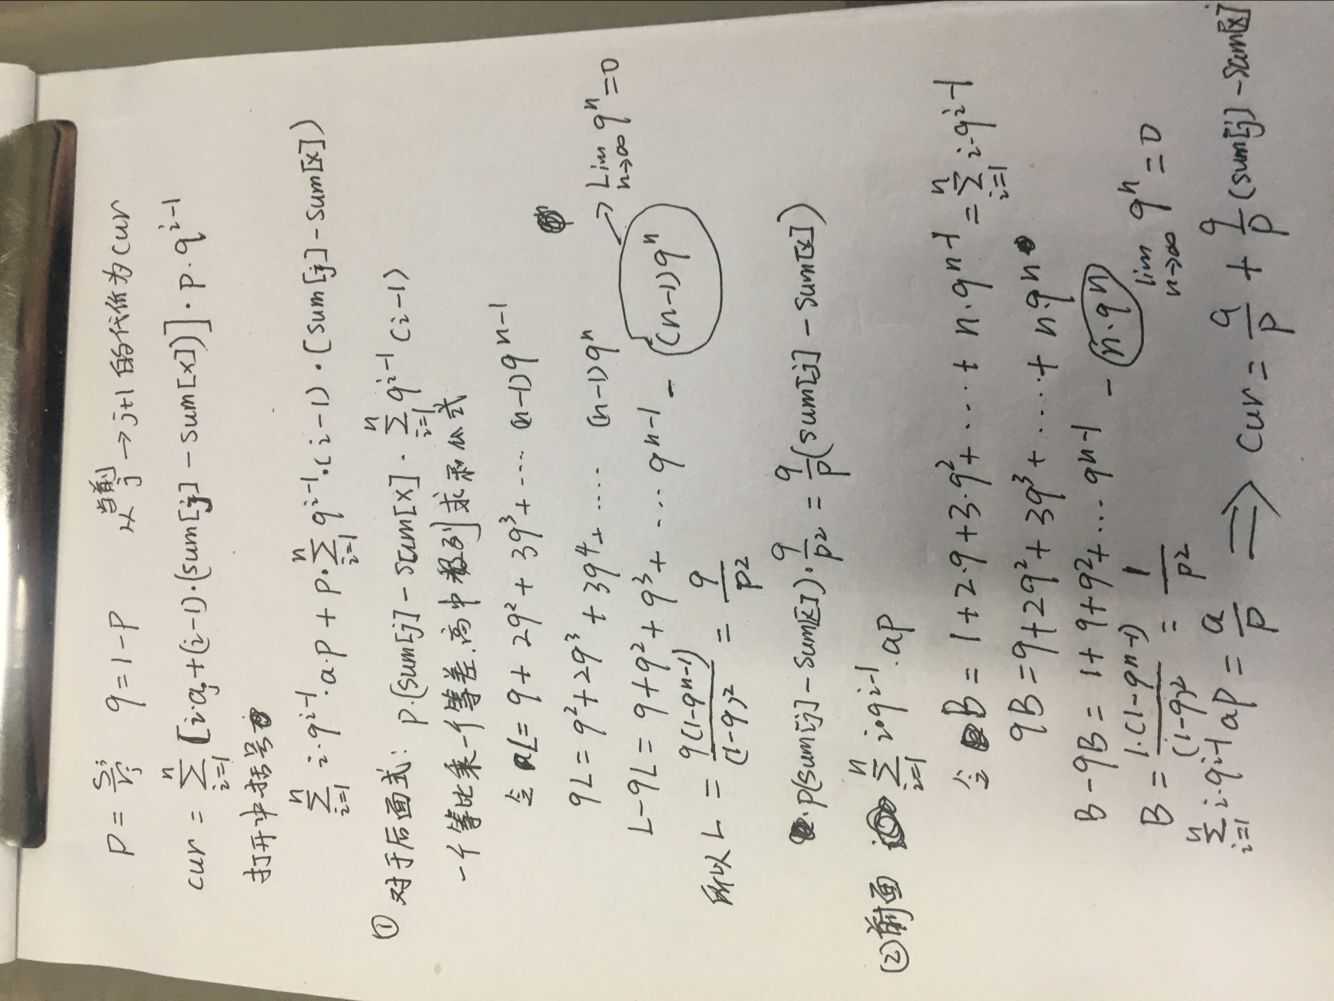 P = Si/ri q = 1-P 当前从j→j+1的代价为cur
cur = ∑_{i=1}^{n} [i·aj+(i-1)·(sum[j]-sum[x])]·p·q^{i-1}
打开中括号
∑_{i=1}^{n} i·q^{i-1}·a·p + p·∑_{i=1}^{n} q^{i-1}·(i-1)·(sum[j]-sum[x])
① 对于后面式: p·(sum[j]-sum[x]·∑_{i=1}^{n} q^{i-1}(i-1)
一个等比乘一个等差.高中数列求和公式
令 L = q+2q²+3q³+··· (n-1)q^{n-1}
qL = q²+2q³+3q⁴+···· (n-1)q^n
L-qL = q+q²+q³+··· q^{n-1} - (n-1)q^n → Lim_{n→∞} q^n = 0
所以 L = q(1-q^{n-1})/(1-q)² = q/p²
·p(sum[j]-sum[x])·q/p² = q/p(sum[j]-sum[x])
②前面 ∑_{i=1}^{n} i·q^{i-1}·ap
令 B = 1+2·q+3·q²+····+n·q^{n-1} = ∑_{i=1}^{n} i·q^{i-1}
qB = q+2q²+3q³+·····+n·q^n
B-qB = 1+q+q²+··· q^{n-1} - n·q^n lim_{n→∞} q^n = 0
B = 1·(1-q^{n-1})/(1-q)² = 1/p²
∑_{i=1}^{n} i·q^{i-1}ap = a/p ⇒ cur = a/p + q/p(sum[j]-sum[x]